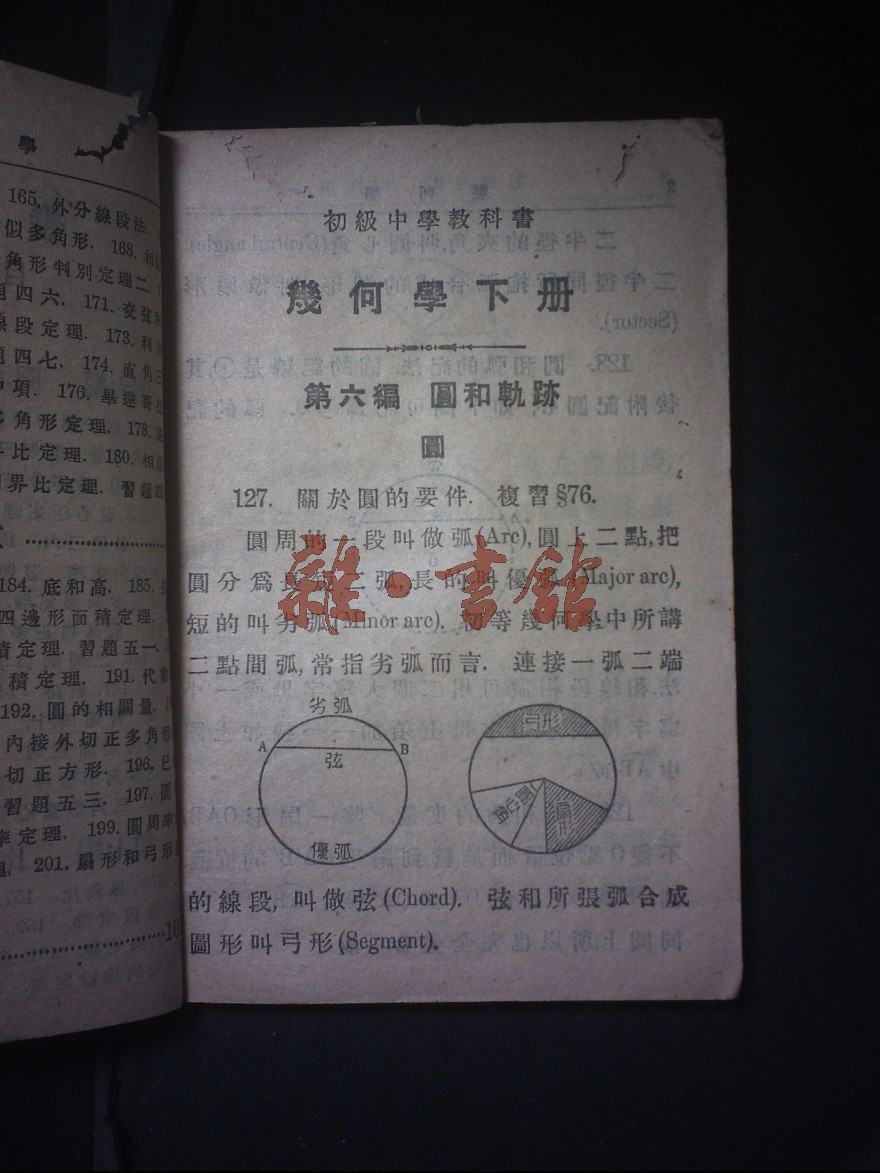 學
165. 外分線段法.
似多角形. 168. 相
角形判別定理二.
題四六. 171. 交弦
線段定理. 173. 利用
題四七. 174. 直角三
中項. 176. 畢達哥拉
多角形定理. 178.
界比定理. 180. 相似
周界比定理. 習題四
184. 底和高. 185.
四邊形面積定理.
積定理. 習題五一.
積定理. 191. 代數
192. 圓的相關量.
內接外切正多角形
切正方形. 196. 已
習題五三. 197. 圓
率定理. 199. 圓周率
201. 扇形和弓形
10
初級中學教科書
幾何學下册
第六編 圓和軌跡
圓
127. 關於圓的要件. 複習§76.
圓周的一段叫做弧(Arc),圓上二點,把
圓分爲長短二弧,長的叫優弧(Major arc),
短的叫劣弧(Minor arc). 初等幾何學中所講
二點間弧,常指劣弧而言. 連接一弧二端
劣弧
A B
弦
優弧
弓形
圓心角
扇形
的線段,叫做弦(Chord). 弦和所張弧合成
圖形叫弓形(Segment).
雜·書館